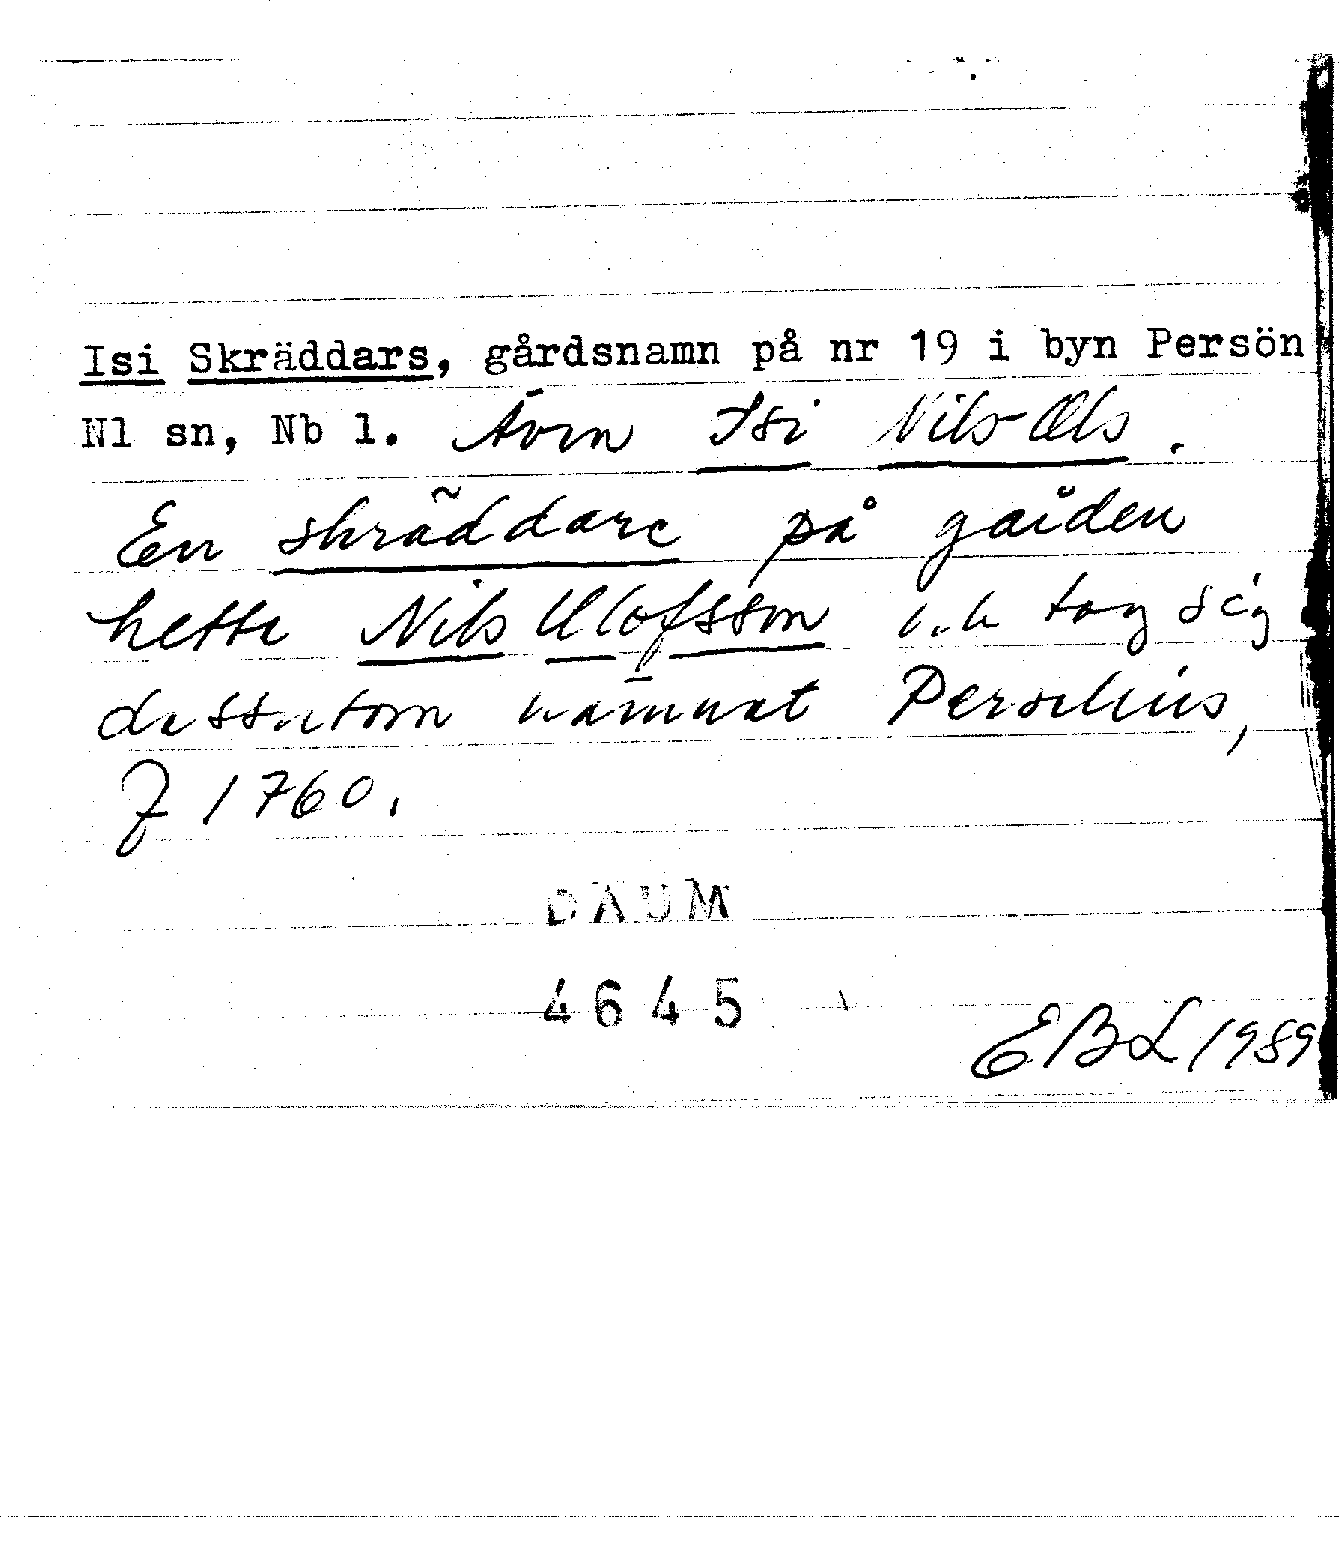 Isi Skräddars, gårdsnamn på nr 19 i byn Persön
Nl sn, Nb l. Även Isi Nils-Ols.
En skräddare på gården
hette Nils Olofsson och tog sig
dessutom namnet
f 1760.
DAUM
4645
EBL 1989